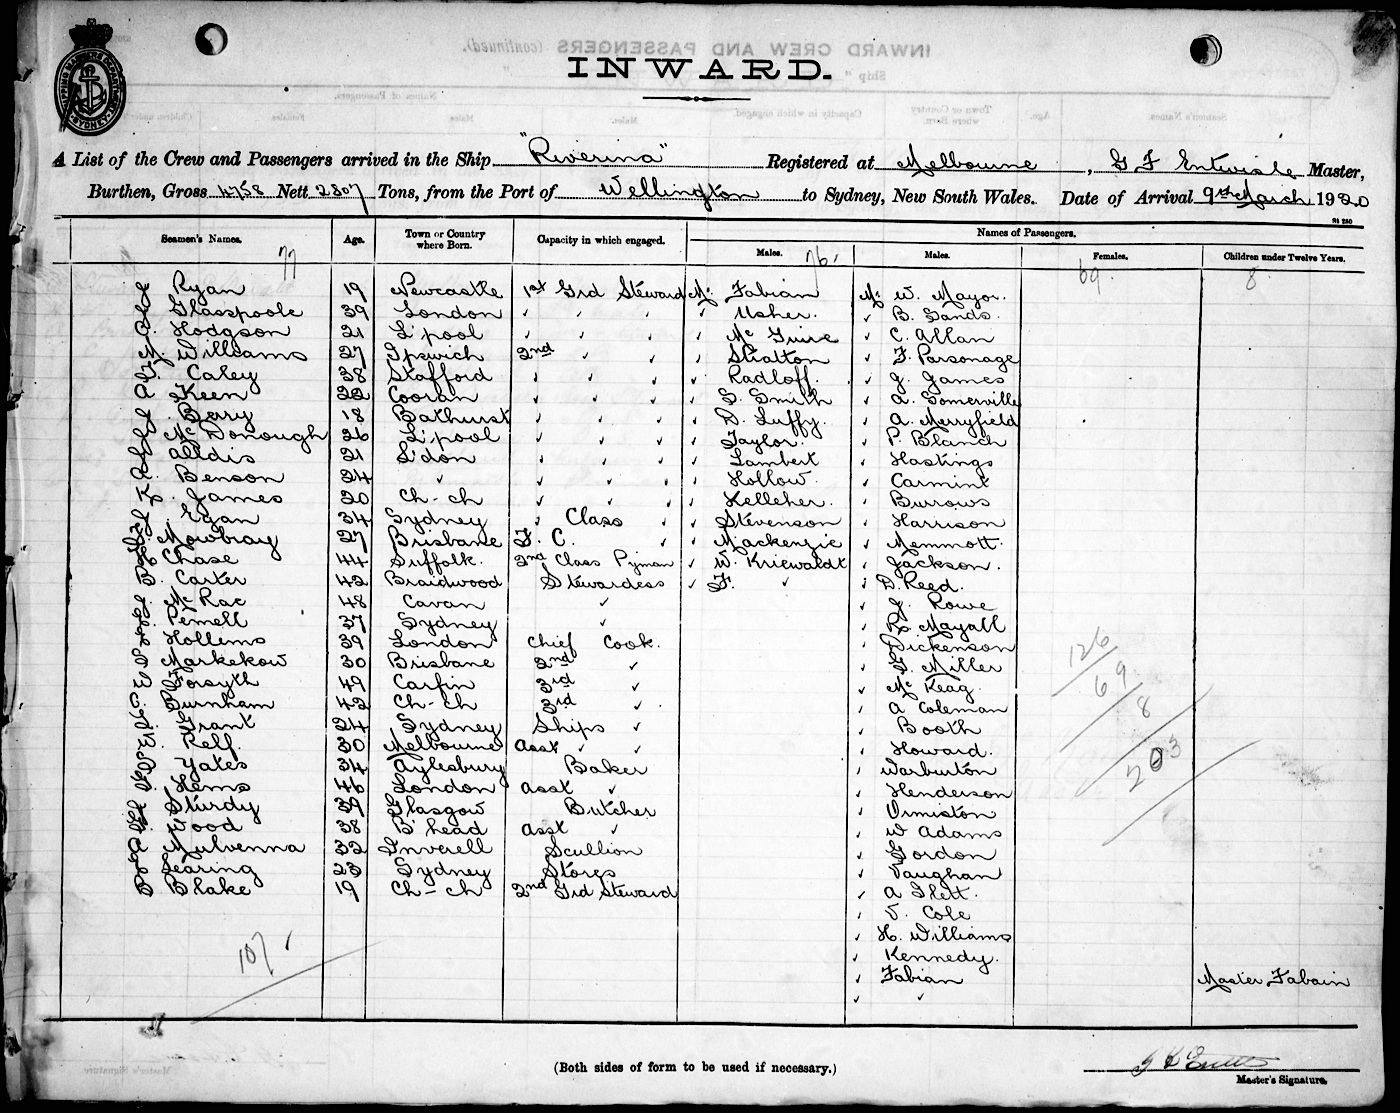 INWARD.
SHIPPING MASTERS DEPARTMENT SYDNEY
A List of the Crew and Passengers arrived in the Ship "Riverina" Registered at Melbourne, G F Entwisle Master,
Burthen, Gross 4758 Nett 2807 Tons, from the Port of Wellington to Sydney, New South Wales. Date of Arrival 9th March 1920
Seamen's Names. Age. Town or Country where Born. Capacity in which engaged. Names of Passengers.
Males. Males. Females. Children under Twelve Years.
77 76 69 8
Ryan 19 Newcastle 1st Grd Steward Mr Fabian Mr W. Mayor.
Glasspoole 39 London " " " " Usher. " B. Sands.
Hodgson 21 L'pool " " " " Mc Guire " C. Allan
Williams 27 Ipswich 2nd " " " Stratton " F. Parsonage
Caley 38 Stafford " " " " Radloff. " J. James
A. Keen 22 Cooran " " " " S. Smith " A. Somerville
Berry 18 Bathurst " " " " D. Luffy. " A. Merryfield
McDonough 26 L'pool " " " " Taylor. " P. Blanch
Alldis 21 L'don " " " " Lambert " Hastings
Benson 24 " " " " " Hollow. " Carmint
James 20 Ch-ch " " " " Kelleher. " Burrows
Egan 34 Sydney " Class " " Stevenson " Harrison
Mowbray 27 Brisbane F. C. " " Mackenzie " Memmott.
Chase 44 Suffolk. 2nd Class Pyman " W. Kriewaldt " Jackson.
Carter 42 Braidwood Stewardess " F. " " D. Reed.
McRae 48 Cavan " " J. Rowe
Pernell 37 Sydney " " R. Mayall
Hollems 39 London Chief Cook. " Dickenson
Markekow 30 Brisbane 2nd " " G. Miller
Forsyth 49 Carfin 3rd " " Mc Keag.
Burnham 42 Ch-ch 3rd " " A Coleman
Grant 24 Sydney Ships " " Booth
Relf. 30 Melbourne Asst " " " Howard.
Yates 34 Aylesbury Baker " Warburton
Hems 46 London Asst " " Henderson
Sturdy 39 Glasgow Butcher " Ormiston
Wood 38 B'head Asst " " W Adams
Mulvenna 32 Inverell Scullion " Gordon
Searing 23 Sydney Stores " Vaughan
Blake 19 Ch-ch 2nd Grd Steward " A Ilett.
" V. Cole
" H. Williams
" Kennedy.
" Fabian Master Fabain
" "
107
126
69
8
203
(Both sides of form to be used if necessary.)
Master's Signature.